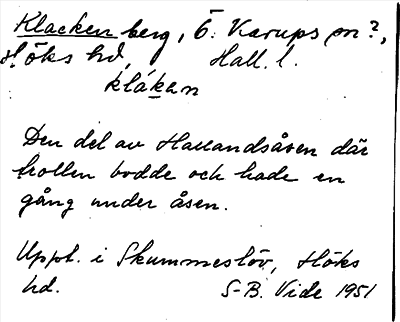 Klacken berg, Ö. Karups sn?,
Höks hd, Hall. l.
klákan
Den del av Hallandsåsen där
trollen bodde och hade en
gång under åsen.
Uppt. i Skummeslöv, Höks
hd. S-B. Vide 1951